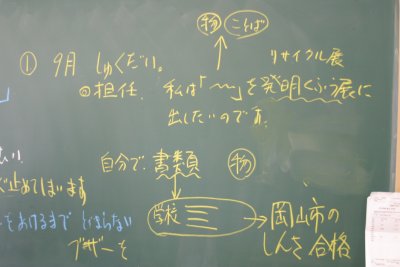 物 ことば
① 9月 しゅくだい。 リサイクル展
◎担任. 私は「〜〜」を発明くふう展に
出したいのです.
自分で. 書類 物
い.
ぐ止めてしまいます
学校 → 岡山市の
をあけるまで とまらない
しんさ 合格
ブザーを